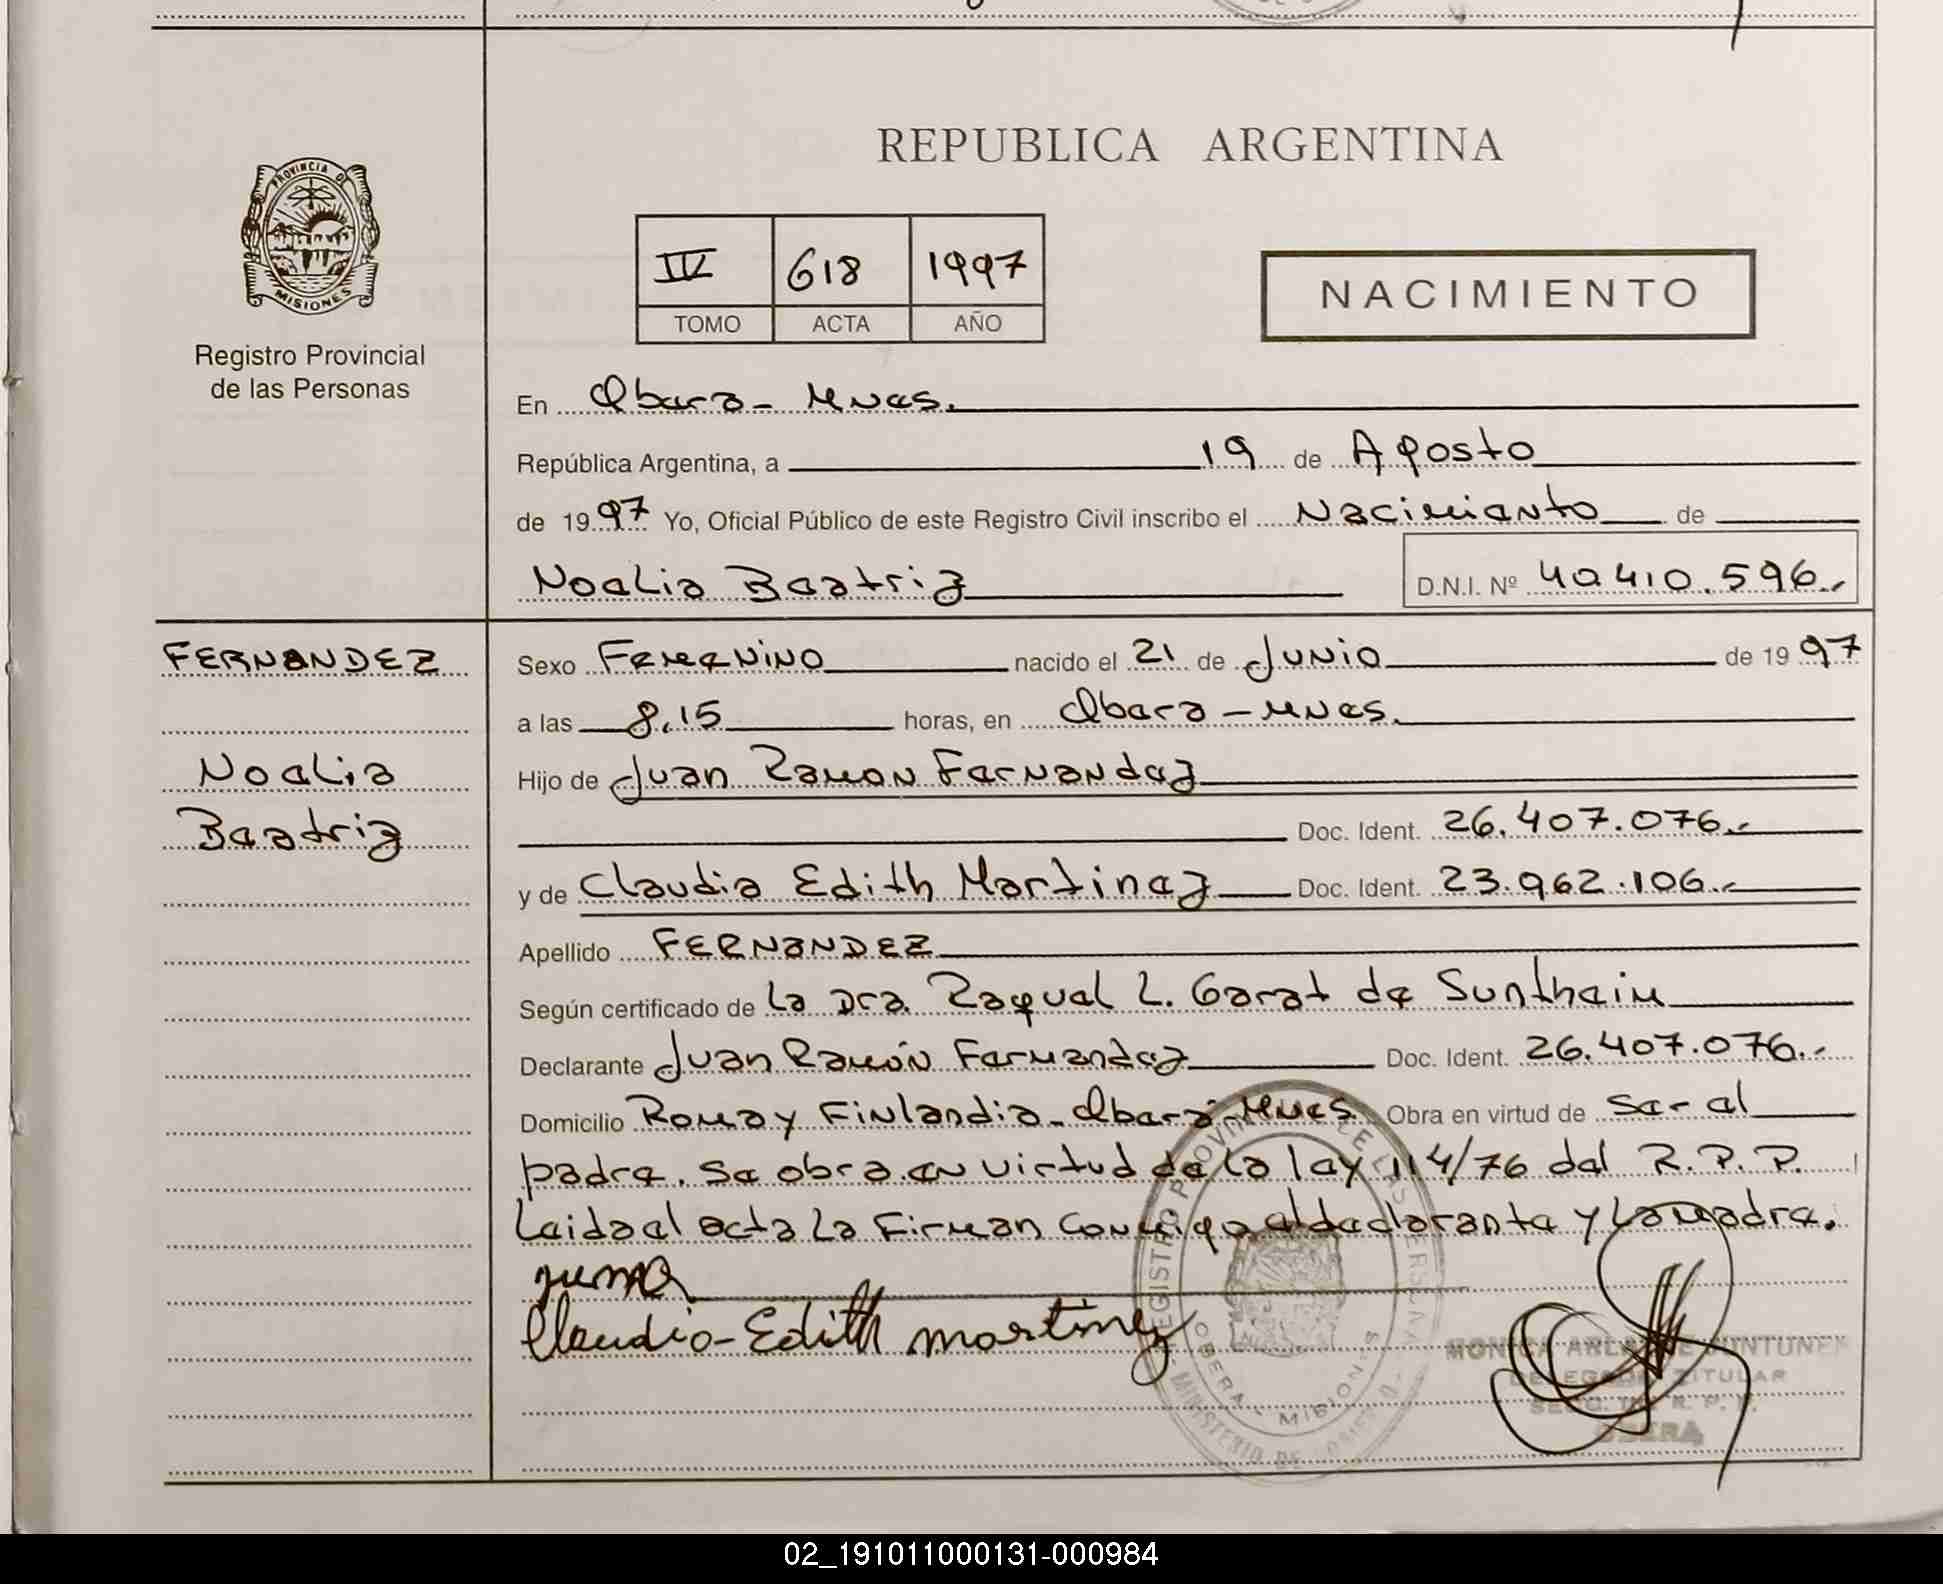 PROVINCIA DE
MISIONES
Registro Provincial
de las Personas
REPUBLICA ARGENTINA
IV 618 1997
TOMO ACTA AÑO
NACIMIENTO
En Obera - Mnes.
República Argentina, a 19 de Agosto
de 1997 Yo, Oficial Público de este Registro Civil inscribo el Nacimiento de
Noelia Beatriz D.N.I. Nº 40.410.596.-
FERNANDEZ
Noelia
Beatriz
Sexo Femenino nacido el 21 de Junio de 1997
a las 8,15 horas, en Obera - Mnes.
Hijo de Juan Ramon Fernandez
Doc. Ident. 26.407.076.-
y de Claudia Edith Martinez Doc. Ident. 23.962.106.-
Apellido FERNANDEZ
Según certificado de la Dra. Raquel L. Garat de Sunthein
Declarante Juan Ramón Fernandez Doc. Ident. 26.407.076.-
Domicilio Roma y Finlandia - Obera - Mnes. Obra en virtud de Ser el
padre. Se obra en virtud de la ley 114/76 del R.P.P.
Leida el acta la Firman conmigo el declarante y la madre.
Claudia - Edith martinez
REGISTRO PROVINCIAL DE LAS PERSONAS
OBERA - MISIONES
MINISTERIO DE GOBIERNO
MONICA DE JUNTUNEN
DELEGADA TITULAR
R. P. P.
OBERA
02_191011000131-000984